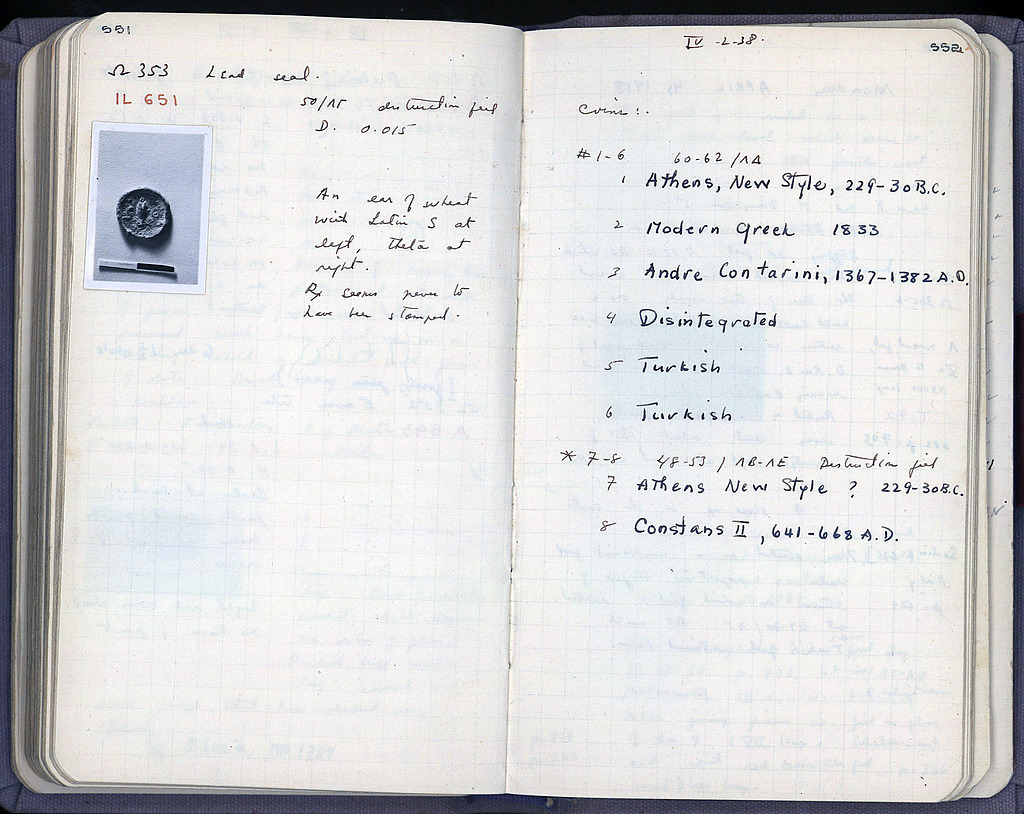 551
Ω 353 Lead seal.
IL 651
50/ΛΣΤ destruction fill
D. 0.015
An ear of wheat
with Latin S at
left, theta at
right.
Rx seems never to
have been stamped.
IV-2-38.
552
coins:.
#1-6 60-62/ΛΔ
1 Athens, New Style, 229-30 B.C.
2 Modern Greek 1833
3 Andre Contarini, 1367-1382 A.D.
4 Disintegrated
5 Turkish
6 Turkish
* 7-8 48-53 / ΛΒ-ΛΕ Destruction fill
7 Athens New Style ? 229-30 B.C.
8 Constans II, 641-668 A.D.